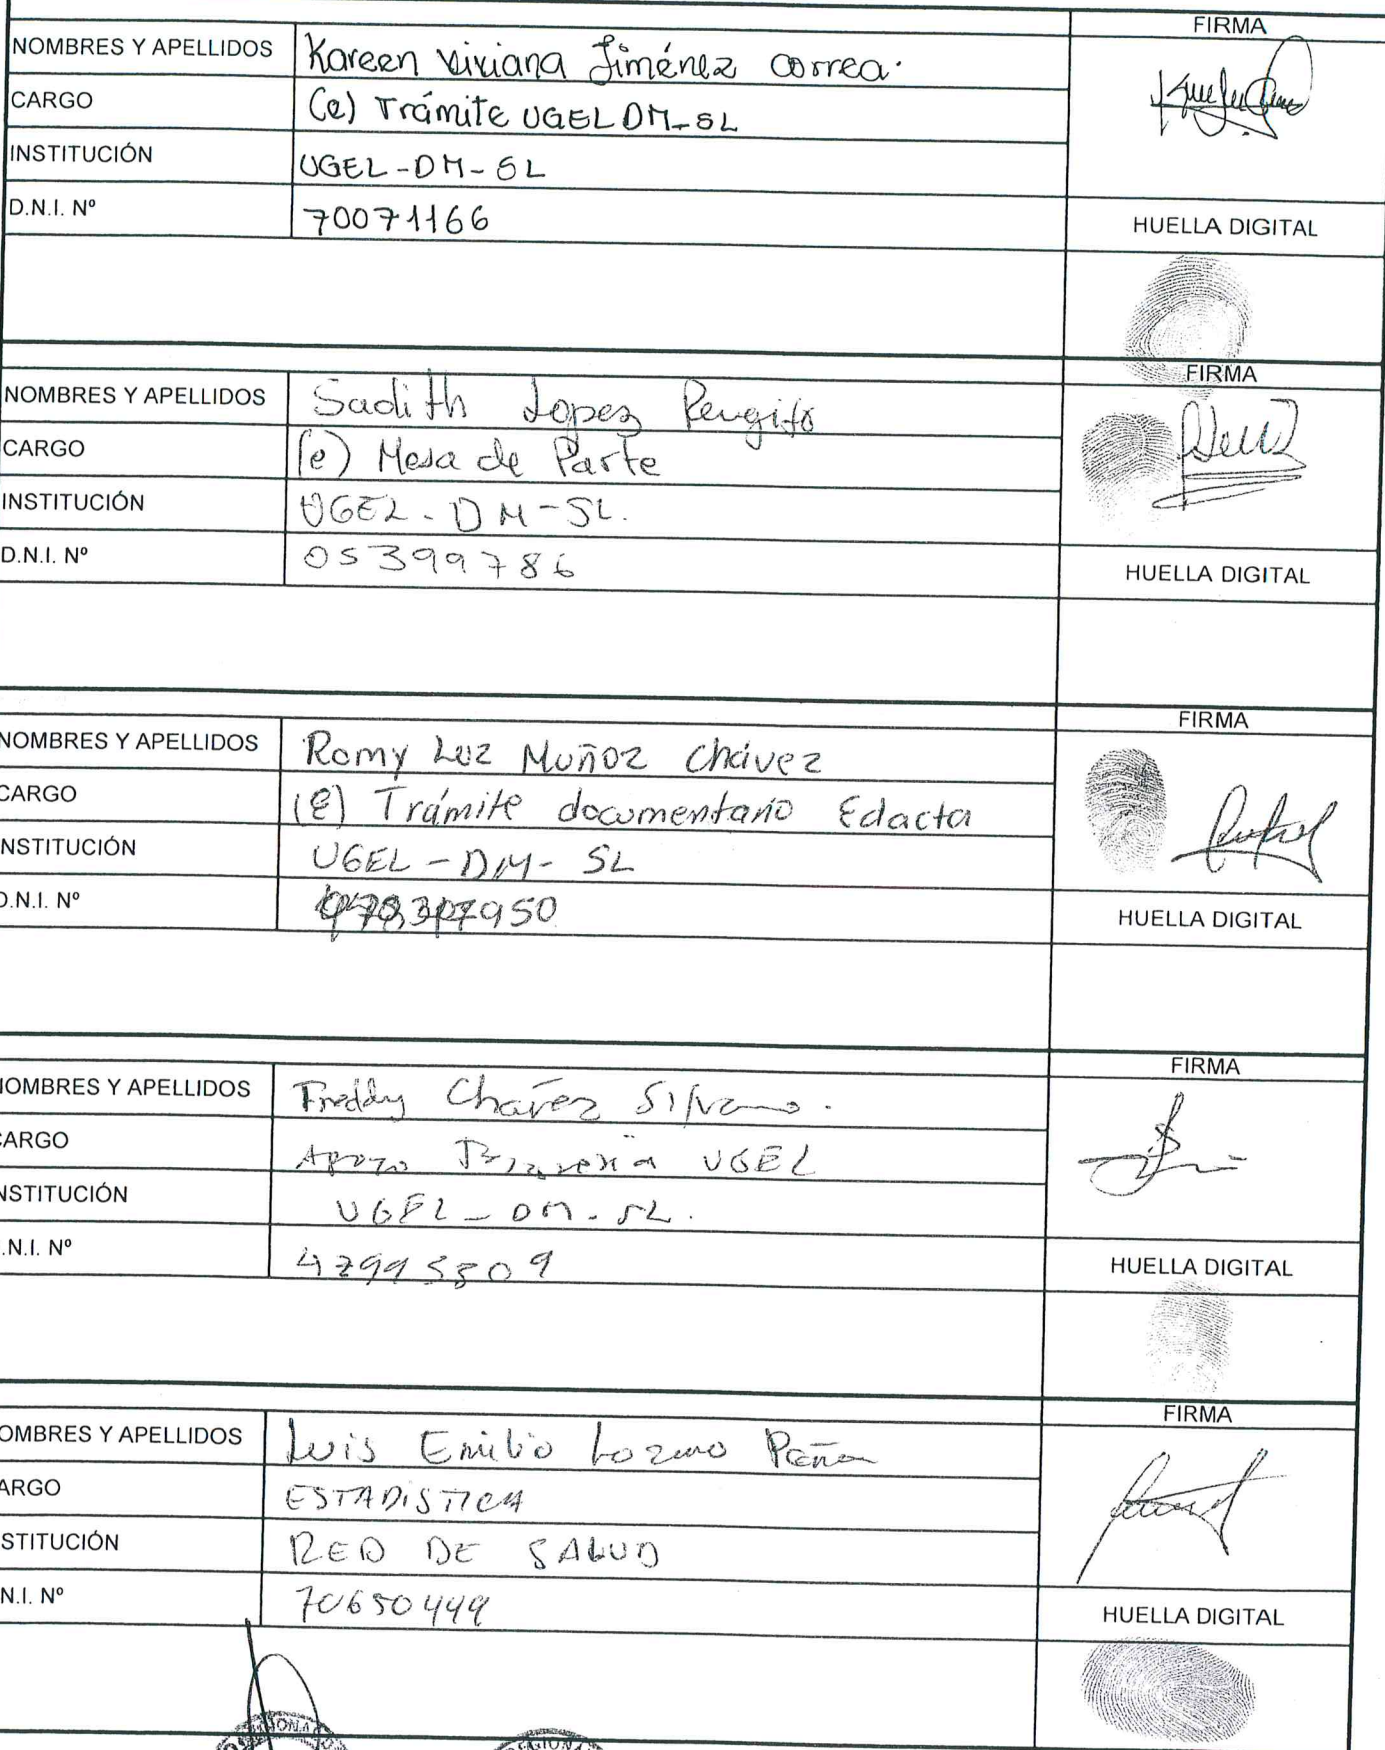 FIRMA
NOMBRES Y APELLIDOS Kareen Viviana Jiménez Correa.
CARGO (e) Trámite UGEL DM-SL
INSTITUCIÓN UGEL-DM-SL
D.N.I. Nº 70071166
HUELLA DIGITAL
FIRMA
NOMBRES Y APELLIDOS Sadith Lopez Rengifo
CARGO (e) Mesa de Parte
INSTITUCIÓN UGEL-DM-SL.
D.N.I. Nº 05399786
HUELLA DIGITAL
FIRMA
NOMBRES Y APELLIDOS Romy Luz Muñoz Chávez
CARGO (e) Trámite documentario Edacta
NSTITUCIÓN UGEL-DM-SL
D.N.I. Nº
HUELLA DIGITAL
FIRMA
NOMBRES Y APELLIDOS Freddy Chavez Silvano.
CARGO Apoyo UGEL
NSTITUCIÓN UGEL-DM-SL.
.N.I. Nº
HUELLA DIGITAL
FIRMA
OMBRES Y APELLIDOS Luis Emilio Lozano Peña
ARGO ESTADISTICA
STITUCIÓN RED DE SALUD
N.I. Nº 70650449
HUELLA DIGITAL